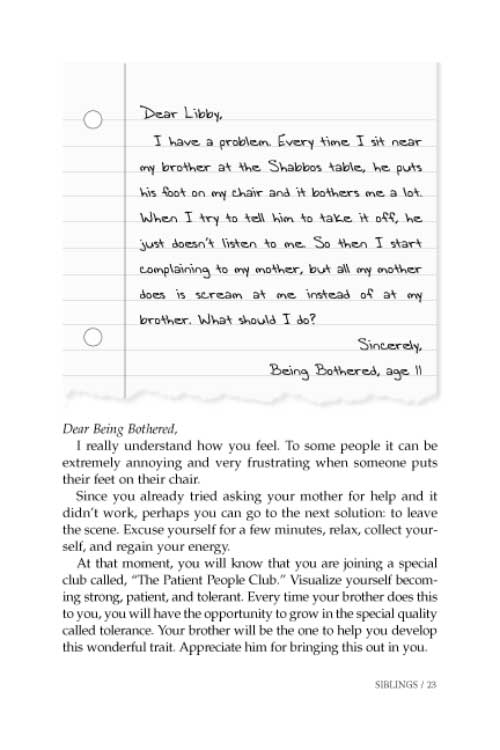 Dear Libby,
I have a problem. Every time I sit near
my brother at the Shabbos table, he puts
his foot on my chair and it bothers me a lot.
When I try to tell him to take it off, he
just doesn't listen to me. So then I start
complaining to my mother, but all my mother
does is scream at me instead of at my
brother. What should I do?
Sincerely,
Being Bothered, age 11
Dear Being Bothered,
I really understand how you feel. To some people it can be
extremely annoying and very frustrating when someone puts
their feet on their chair.
Since you already tried asking your mother for help and it
didn't work, perhaps you can go to the next solution: to leave
the scene. Excuse yourself for a few minutes, relax, collect your-
self, and regain your energy.
At that moment, you will know that you are joining a special
club called, "The Patient People Club." Visualize yourself becom-
ing strong, patient, and tolerant. Every time your brother does this
to you, you will have the opportunity to grow in the special quality
called tolerance. Your brother will be the one to help you develop
this wonderful trait. Appreciate him for bringing this out in you.
SIBLINGS / 23